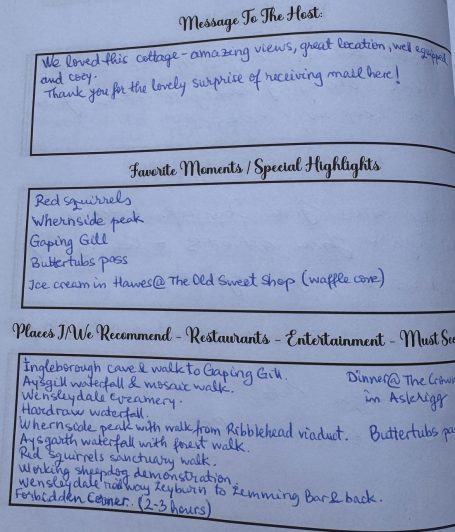 Message To The Host:
We loved this cottage - amazing views, great location, well equipped
and cosy.
Thank you for the lovely surprise of receiving mail here!
Favorite Moments / Special Highlights
Red squirrels
Whernside peak
Gaping Gill
Buttertubs pass
Ice cream in Hawes @ The Old Sweet Shop (waffle cone)
Places I/We Recommend - Restaurants - Entertainment - Must See
Ingleborough cave & walk to Gaping Gill.
Dinner @ The Crown
in Askrigg
Aysgill waterfall & mosaic walk.
Wensleydale creamery.
Hardraw waterfall.
Whernside peak with walk from Ribblehead viaduct.
Buttertubs pa
Aysgarth waterfall with forest walk.
Red Squirrels sanctuary walk.
Working sheepdog demonstration.
Wensleydale railway Leyburn to Lemming Bar & back.
Forbidden Corner. (2-3 hours)